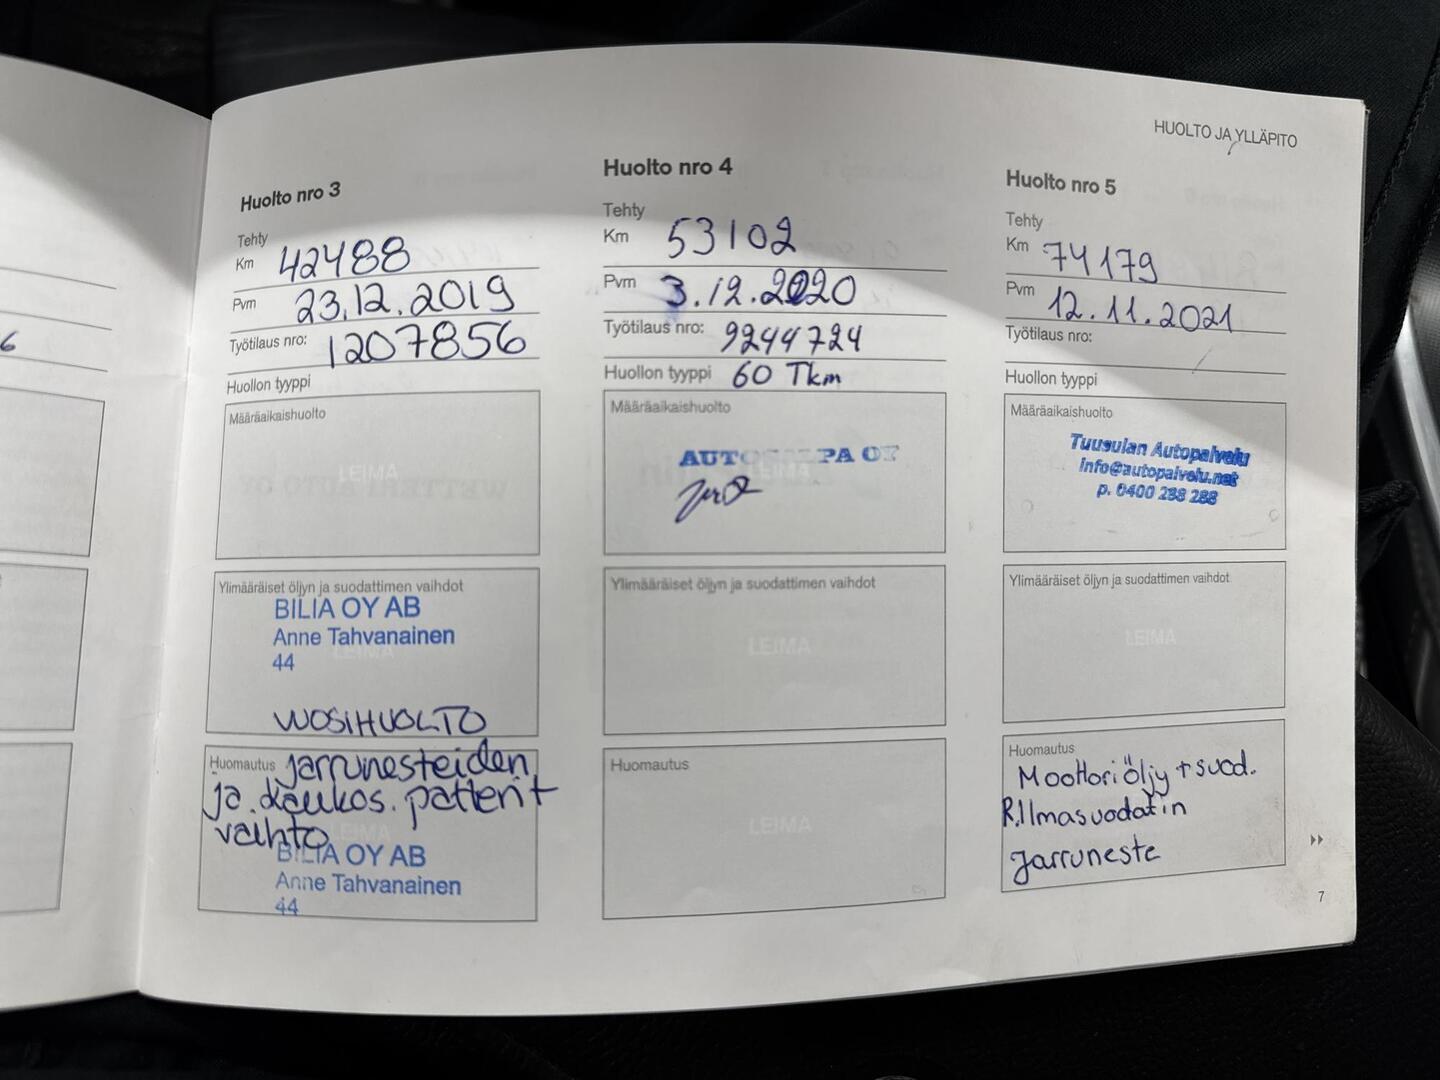 HUOLTO JA YLLÄPITO
6
Huolto nro 3
Tehty
Km 42488
Pvm 23.12.2019
Työtilaus nro: 1207856
Huollon tyyppi
Määräaikaishuolto
LEIMA
Ylimääräiset öljyn ja suodattimen vaihdot
BILIA OY AB
Anne Tahvanainen
LEIMA
44
VUOSIHUOLTO
Huomautus jarrunesteiden
ja kaukos. patterit
vaihto
LEIMA
BILIA OY AB
Anne Tahvanainen
44
Huolto nro 4
Tehty
Km 53102
Pvm 3.12.2020
Työtilaus nro: 9244724
Huollon tyyppi 60 Tkm
Määräaikaishuolto
LEIMA
Ylimääräiset öljyn ja suodattimen vaihdot
LEIMA
Huomautus
LEIMA
Huolto nro 5
Tehty
Km 74179
Pvm 12.11.2021
Työtilaus nro:
Huollon tyyppi
Määräaikaishuolto
Tuusulan Autopalvelu
info@autopalvelu.net
p. 0400 288 288
Ylimääräiset öljyn ja suodattimen vaihdot
LEIMA
Huomautus
Moottoriöljy + suod.
R.Ilmasuodatin
Jarruneste
7